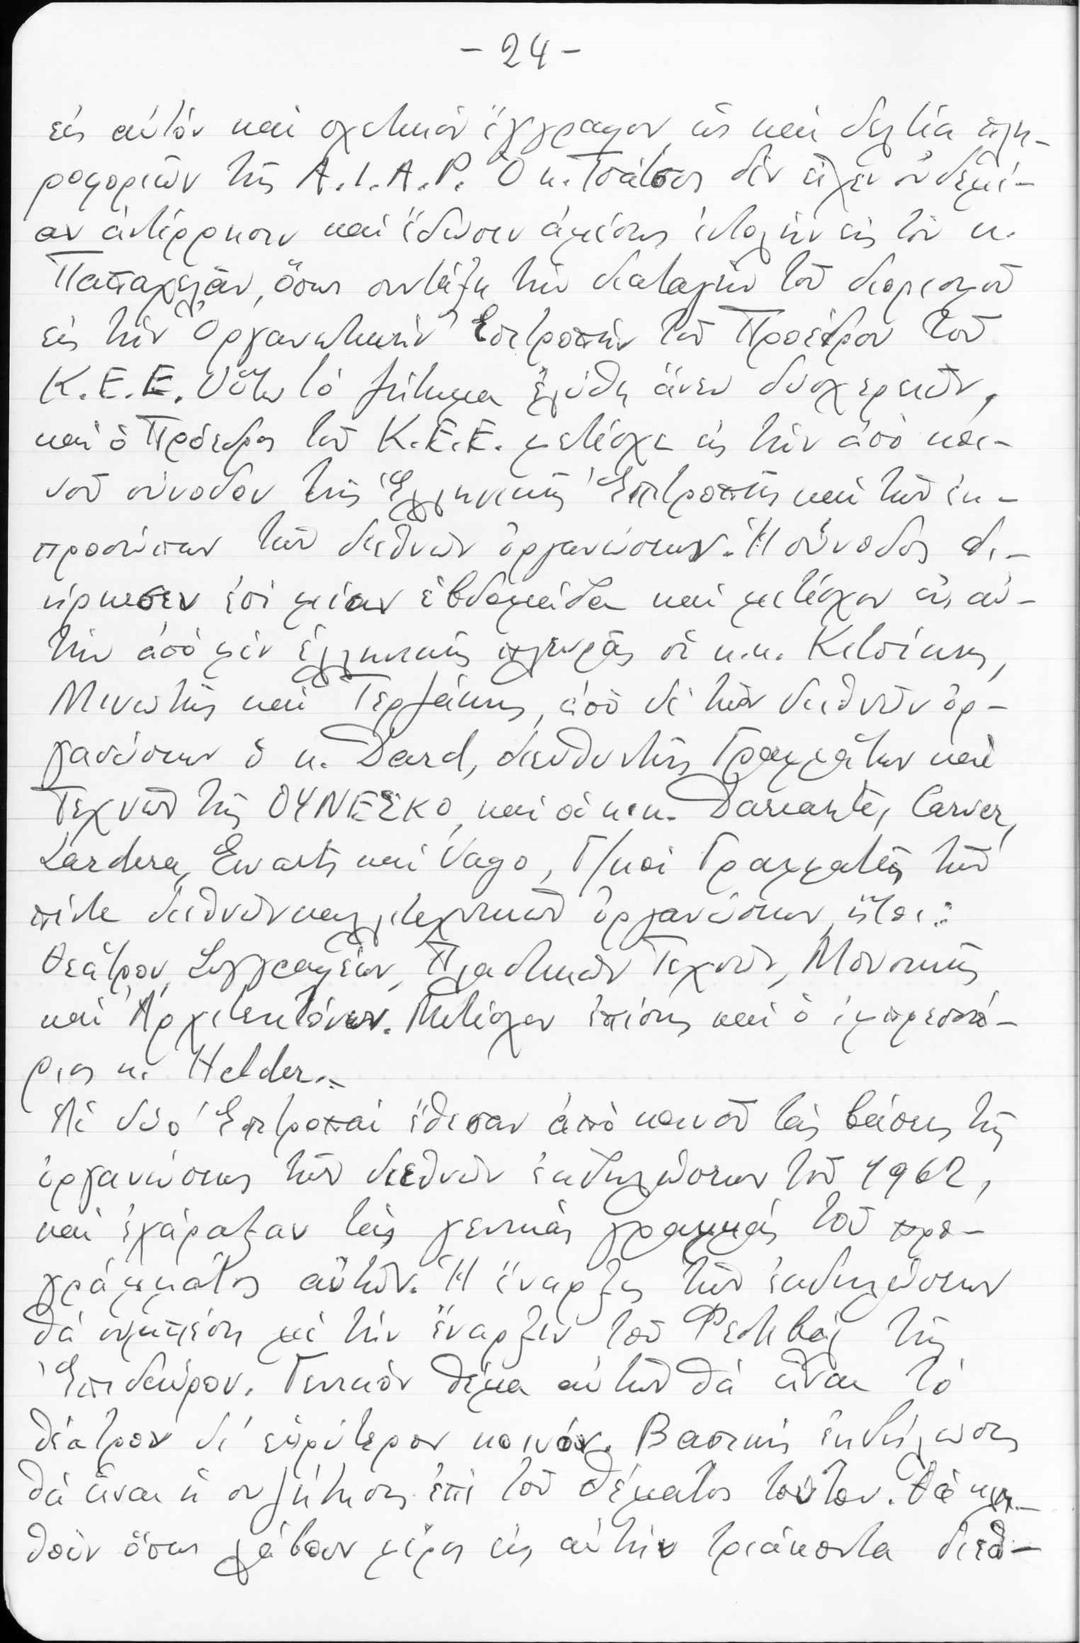 - 24 -
εἰς αὐτόν καί σχετικόν ἔγγραφον, ὡς καί δελτία πλη-
ροφοριῶν τῆς A.I.A.P. Ὁ κ. Τσάτσος δέν εἶχεν οὐδεμί-
αν ἀντίρρησιν καί ἔδωσεν ἀμέσως ἐντολήν εἰς τόν κ.
Παπαχελᾶν, ὅπως συντάξῃ τήν διαταγήν τοῦ διορισμοῦ
εἰς τήν Ὀργανωτικήν Ἐπιτροπήν τοῦ Προέδρου τοῦ
Κ.Ε.Ε. Οὕτω τό ζήτημα ἐλύθη ἄνευ δυσχερειῶν,
καί ὁ Πρόεδρος τοῦ Κ.Ε.Ε. μετέσχε εἰς τήν ἀπό κοι-
νοῦ σύνοδον τῆς Ἑλληνικῆς Ἐπιτροπῆς καί τῶν ἐκ-
προσώπων τῶν διεθνῶν ὀργανώσεων. Ἡ σύνοδος δι-
ήρκεσεν ἐπί μίαν ἑβδομάδα καί μετέσχον εἰς αὐ-
τήν ἀπό μέν ἑλληνικῆς πλευρᾶς οἱ κ.κ. Κιτσίκης,
Μινωτής καί Τερζάκης, ἀπό δέ τῶν διεθνῶν ὀρ-
γανώσεων ὁ κ. Dard, διευθυντής Γραμμάτων καί
Τεχνῶν τῆς ΟΥΝΕΣΚΟ, καί οἱ κ.κ. Darcante, Carver,
Lardera, Ewarts καί Vago, Γ/κοί Γραμματεῖς τῶν
πέντε διεθνῶν καλλιτεχνικῶν ὀργανώσεων, ἤτοι:
Θεάτρου, Συγγραφέων, Πλαστικῶν Τεχνῶν, Μουσικῆς
καί Ἀρχιτεκτόνων. Μετέσχεν ἐπίσης καί ὁ ἰμπρεσσά-
ριος κ. Helder.-
Αἱ δύο Ἐπιτροπαί ἔθεσαν ἀπό κοινοῦ τάς βάσεις τῆς
ὀργανώσεως τῶν διεθνῶν ἐκδηλώσεων τοῦ 1962,
καί ἐχάραξαν τάς γενικάς γραμμάς τοῦ προ-
γράμματος αὐτῶν. Ἡ ἔναρξις τῶν ἐκδηλώσεων
θά συμπέσῃ μέ τήν ἔναρξιν τοῦ Φεστιβάλ τῆς
Ἐπιδαύρου. Γενικόν θέμα αὐτῶν θά εἶναι τό
θέατρον δι' εὐρύτερον κοινόν. Βασική ἐκδήλωσις
θά εἶναι ἡ συζήτησις ἐπί τοῦ θέματος τούτου. Θά κλη-
θοῦν ὅπως λάβουν μέρος εἰς αὐτήν τριάκοντα διεθ-